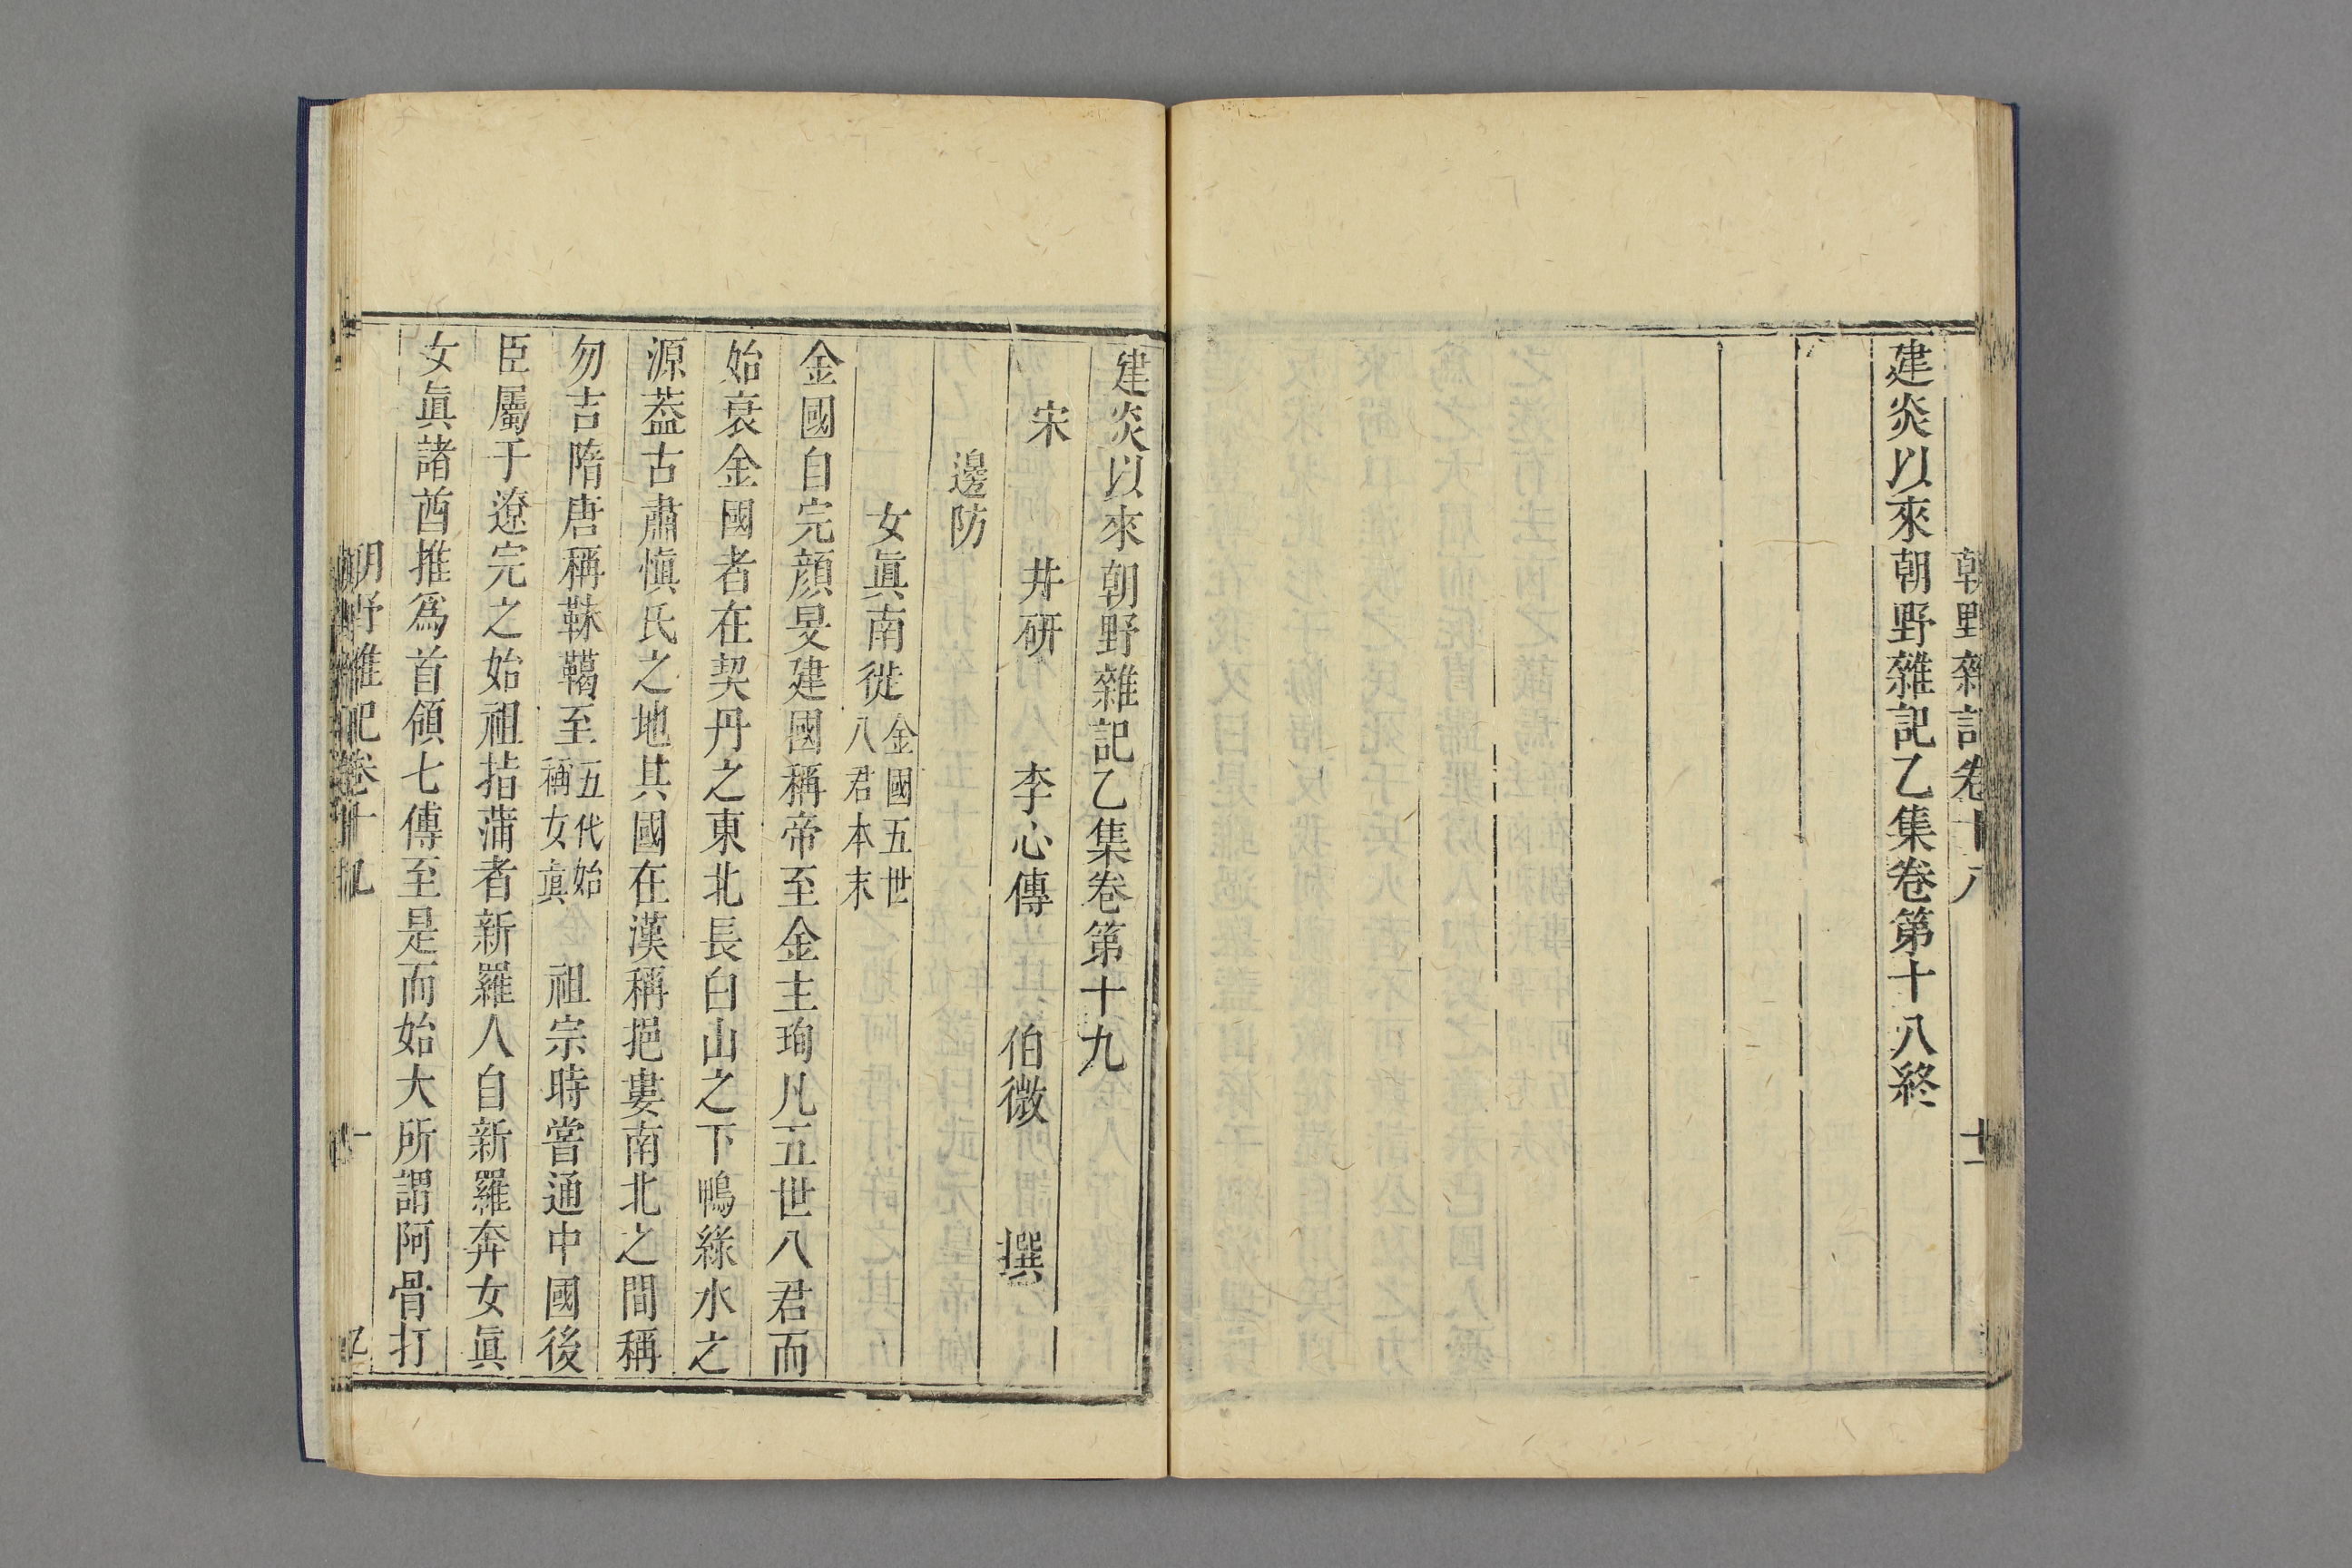 朝野雜記卷十八　十二
建炎以來朝野雜記乙集卷第十八終
建炎以來朝野雜記乙集卷第十九
宋　井研　李心傳　伯微　撰
邊防
女眞南徙金國五世八君本末
金國自完顏旻建國稱帝至金主珣凡五世八君而
始衰金國者在契丹之東北長白山之下鴨綠水之
源葢古肅愼氏之地其國在漢稱挹婁南北之間稱
勿吉隋唐稱靺鞨至五代始稱女眞　祖宗時嘗通中國後
臣屬于遼完之始祖指蒲者新羅人自新羅奔女眞
女眞諸酋推爲首領七傳至是而始大所謂阿骨打
朝野雜記卷十九　一